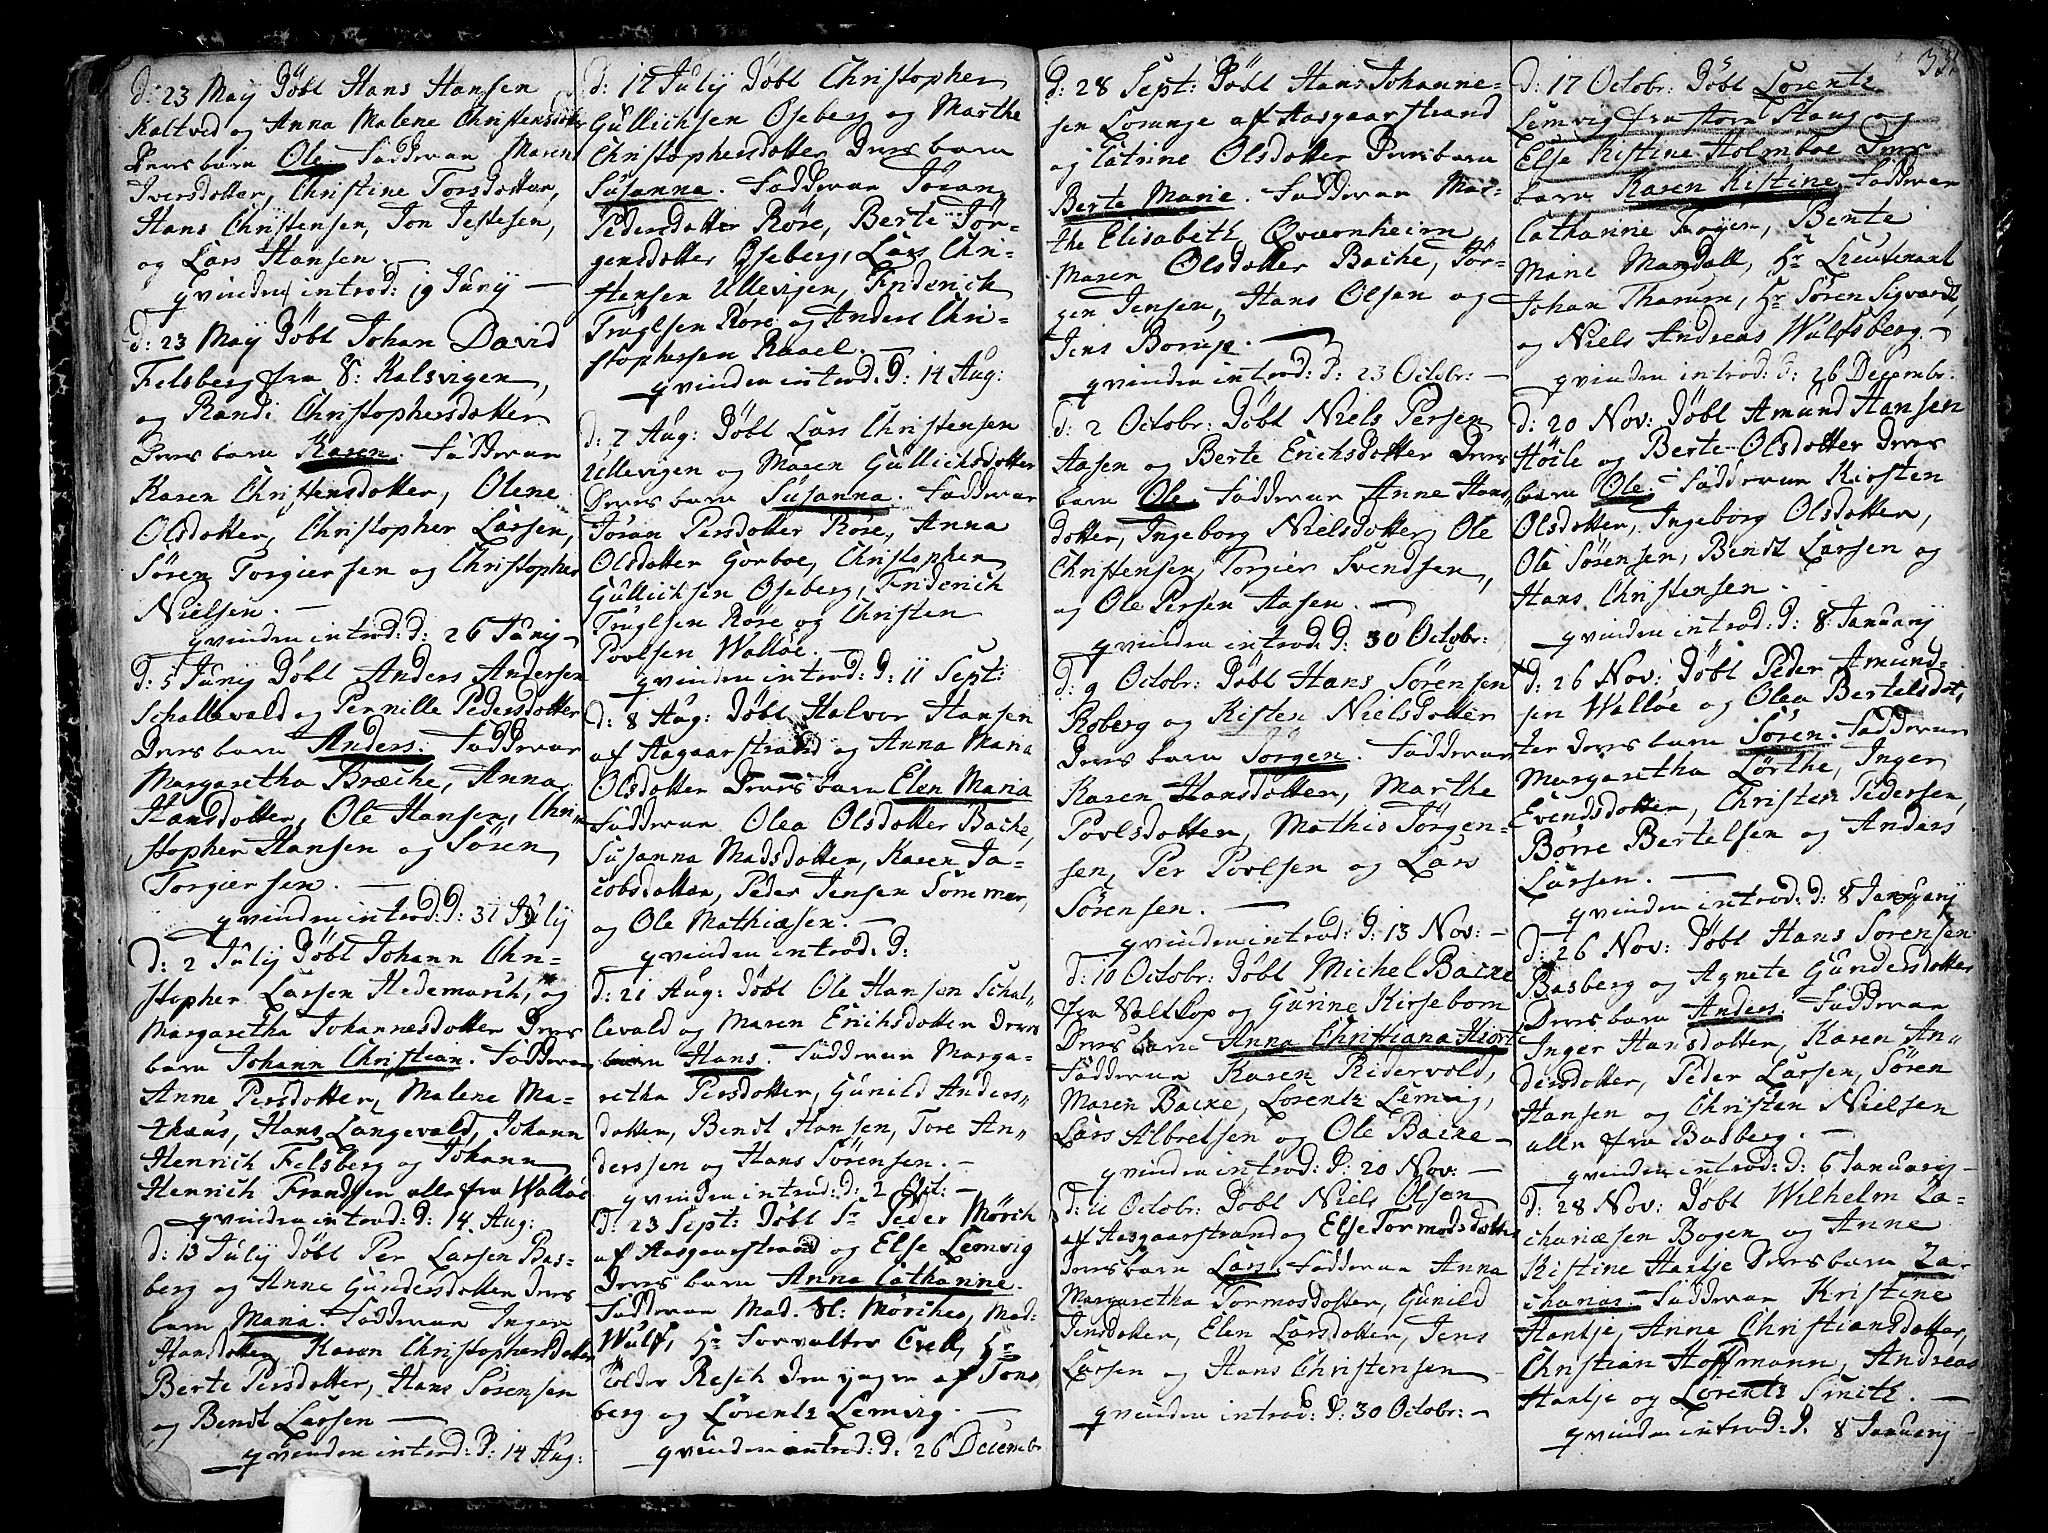 d: 23 Maÿ Döbt Hans Hansen
Kaltved og Anna Malene Christensdotter
Deres barn Ole. Fadderne Maren
Iversdotter, Christine Torsdotter,
Hans Christensen, Jon
og Lars Hansen. —
qvinden introd: 19 Junÿ —
d: 23 Maÿ Döbt Johan David
Felsberg fra S: Kalsvigen,
og Randi Christophersdotter
Deres barn Karen. Fadderne
Karen Christensdotter, Olene
Olsdotter, Christopher Larsen,
Sören Torgiersen og Christopher
Nielsen. —
qvinden introd: d: 26 Junÿ —
d: 5 Junÿ Döbt Anders Andersen
Schallevald og Pernille Pedersdotter
Deres barn Anders. Fadderne
Margaretha Bræche, Anna
Hansdotter, Ole Hansen, Chri„
stopher Hansen og Sören
Torgiersen. —
qvinden introd: d: 31 Julÿ
d: 2 Julÿ Döbt Johann Chri-
stopher Larsen Hedemarck, og
Margaretha Johannesdotter Deres
barn Johann Christian. Fadderne
Anne Persdotter, Malene Ma-
thæus, Hans Langevald, Johann
Henrich Felsberg og Johann
Henrich Frandsen alle fra Walløe
qvinden introd: d: 14 Aug:
d: 13 Julÿ Döbt Per Larsen Bas-
berg og Anne Gundersdotter Deres
barn Maria. Fadderne Inger
Hansdotter Karen Christophersdotter
Berte Persdotter, Hans Sörensen
og Bendt Larsen —
qvinden introd: d: 14 Aug:
d: 17 Julÿ Döbt Christopher
Gullichsen Oseberg og Marthe
Christophersdotter Deres barn
Susanna. Fadderne Jöran
Pedersdotter Röre, Berte Jör-
gensdotter Oseberg, Lars Chri-
stensen Ullevigen, Friderich
Truglsen Röre og Anders Chri-
stophersen Raael. —
qvinden introd: d: 14 Aug:
d: 7 Aug: Döbt Lars Christensen
Ullevigen og Maren Gullichsdotter
Deres barn Susanna. Fadderne
Jöran Persdotter Röre, Anna
Olsdotter Gorboe, Christopher
Gullichsen Oseberg, Friderich
Truglsen Röre og Christen
Povlsen Walløe.
qvinden introd: d: 11 Sept:
d: 8 Aug: Döbt Halvor Hansen
af Aagaarstrand og Anna Maria
Olsdotter Deres barn Elen Maria
Fadderne Olea Olsdotter Backe,
Susanna Madsdotter, Karen Ja-
cobsdotter, Peder Jensen Sommer,
og Ole Mathiæsen. —
qvinden introd: d:
d: 21 Aug: Döbt Ole Hansen Schal-
levald og Maren Erichsdotter Deres
barn Hans. Fadderne Marga-
retha Persdotter, Gunild Anders„
dotter, Bendt Hansen, Tore An„
derssen og Hans Sörensen. —
qvinden introd: d: 2 Oct: —
d: 23 Sept: Döbt Sr Peder Mörch
af Aasgaarstrand og Else Lemvig
Deres barn Anna Cathrine.
Fadderne Mad. Sl: Mörches, Mad:
Wulf, Hr Forvalter Crell, Hr
Rolder Resch den yngre af Töns
berg og Lorentz Lemvig. —
qvinden introd: d: 26 Decembr
d: 28 Sept: Döbt Hans Johanne-
sen Lorange af Aasgaarstrand
og Catrine Olsdotter Deres barn
Berte Marie. Fadderne Mar-
the Elisabeth Qværnheim,
Maren Olsdotter Backe, Jör-
gen Jensen, Hans Olsen og
Jens Borup. —
qvinden introd: d: 23 Octobr: —
d: 2 Octobr: Döbt Niels Persen
Aasen og Berte Erichsdotter Deres
barn Ole. Fadderne Anne Hans
dotter, Ingeborg Nielsdotter, Ole
Christensen, Torgier Svendsen,
og Ole Persen Aasen. —
qvinden introd: d: 30 Octobr:
d: 9 Octobr: Döbt Hans Sörensen
Roberg og Kisten Nielsdotter
Deres barn Jörgen. Fadderne
Karen Hansdotter, Marthe
Povlsdotter, Mathis Jörgen-
sen, Per Povlsen og Lars
Sörensen. —
qvinden introd: d: 13 Nov: —
d: 10 Octobr: Döbt Michel Backe
fra Valklop og Gurine Kirsebom
Deres barn Anna Christiana Hiort
Fadderne Karen Ridervold,
Maren Backe, Lorentz Lemvig,
Lars Albretsen og Ole Backe —
qvinden introd: d: 20 Nov: —
d: 11 Octobr: Döbt Niels Olsen
af Aasgaarstrand og Else Tormodsdotter
Deres barn Lars. Fadderne Anna
Margaretha Tormosdotter, Gunild
Jensdotter, Elen Larsdotter, Jens
Larsen og Hans Christensen
qvinden introd: d: 30 Octobr: —
d: 17 Octobr: Döbt Lorentz
Lemvig fra Horn Haug og
Else Kistine Holmboe Deres
barn Karen Kistine. Fadderne
Cathrine Troyen, Bente
Marie Mandall, Hr Lieutenant
Johan Tharum, Hr Sören Sigvardt,
og Niels Andreas Wulfsberg. —
qvinden introd: d: 26 Decembr:
d: 20 Nov: Döbt Amund Hansen
Höile og Berte Olsdotter Deres
barn Ole. Fadderne Kirsten
Olsdotter, Ingeborg Olsdotter,
Ole Sörensen, Bendt Larsen og
Hans Christensen.
qvinden introd: d: 8 Januarij
d: 26 Nov: Döbt Peder Amund-
sen Walløe og Olea Bertelsdot,
ter Deres barn Sören. Fadderne
Margaretha Lörthe, Inger
Evendsdotter, Christen Pedersen,
Börre Bertelsen og Anders
Larsen. —
qvinden introd: d: 8 Januarij
d: 26 Nov: Döbt Hans Sörensen
Basberg og Agnete Gundersdotter
Deres barn Anders. Fadderne
Inger Hansdotter, Karen An„
dersdotter, Peder Larsen, Sören
Hansen og Christen Nielsen
alle fra Basberg. —
qvinden introd: d: 6 Januarij
d: 28 Nov: Döbt Wilhelm Za-
chariæsen Bogen og Anne
Kistine Hartje Deres barn Za-
charias. Fadderne Kristine
Hartje, Anne Christiansdotter,
Christian Hoffmann, Andreas
Hartje og Lorentz Smith. —
qvinden introd: d. 8 Januarij